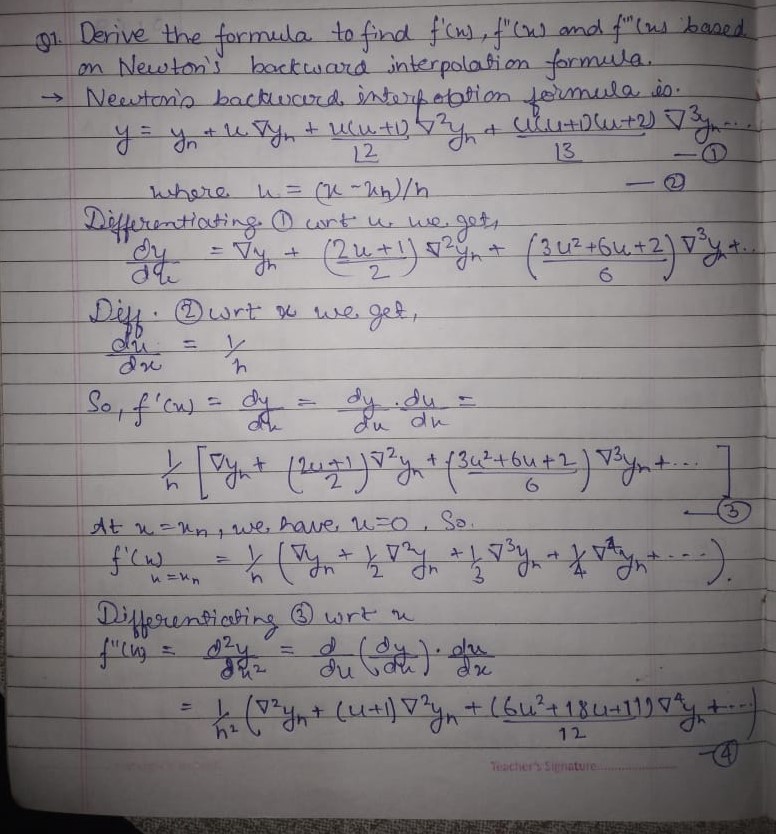 Q1. Derive the formula to find f'(x), f''(x) and f'''(x) based
on Newton's backward interpolation formula.
→ Newton's backward interpolation formula is.
y = yₙ + u ∇yₙ + u(u+1)/⌊2 ∇²yₙ + u(u+1)(u+2)/⌊3 ∇³yₙ ... —①
where u = (x - xₙ)/h —②
Differentiating ① wrt u we get,
dy/du = ∇yₙ + (2u+1/2) ∇²yₙ + (3u²+6u+2/6) ∇³yₙ+..
Diff. ② wrt x we get,
du/dx = 1/h
So, f'(x) = dy/dx = dy/du . du/dx =
1/h [∇yₙ + (2u+1/2) ∇²yₙ + (3u²+6u+2/6) ∇³yₙ + ... ] —③
At x = xₙ, we have u=0. So.
f'(x) x=xₙ = 1/h (∇yₙ + 1/2 ∇²yₙ + 1/3 ∇³yₙ + 1/4 ∇⁴yₙ + ----).
Differentiating ③ wrt x
f''(x) = d²y/dx² = d/du (dy/dx) . du/dx
= 1/h² (∇²yₙ + (u+1) ∇²yₙ + (6u²+18u+11)/12 ∇⁴yₙ +---) —④
Teacher's Signature